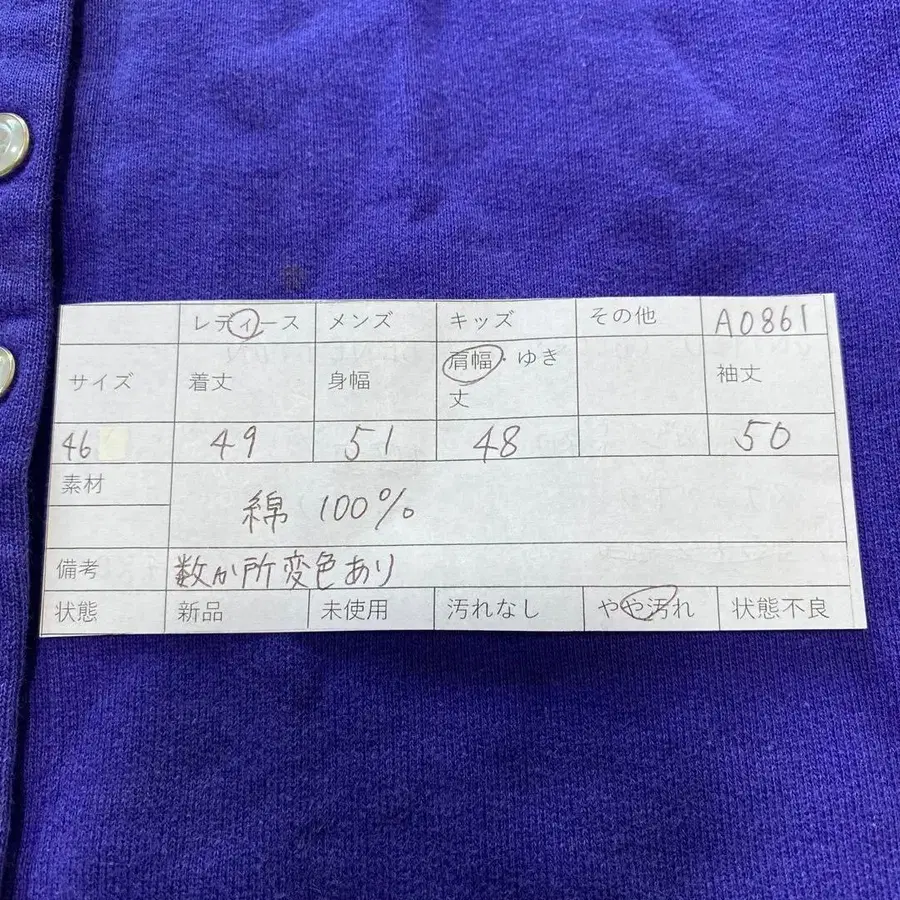 レディース メンズ キッズ その他 A0861
サイズ 着丈 身幅 肩幅・ゆき丈 袖丈
46 49 51 48 50
素材 綿 100%
備考 数か所変色あり
状態 新品 未使用 汚れなし やや汚れ 状態不良